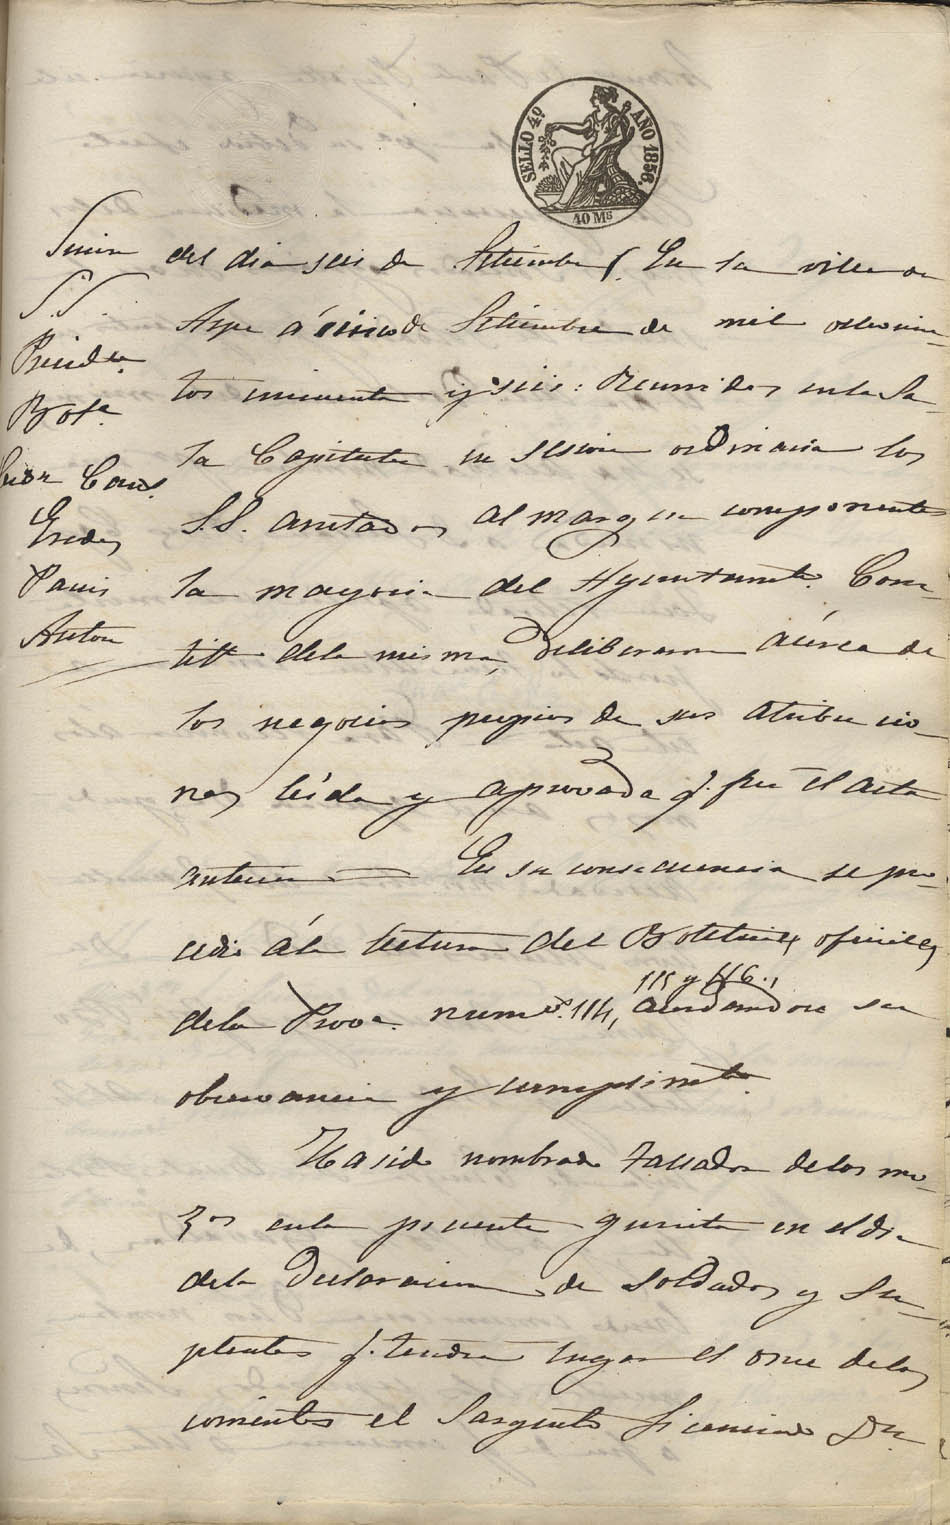 SELLO 4º AÑO 1856.
40 Ms
S.S.
Preside.
Bota.
Cons.
Pavis
Anton
del dia seis de Setiembre. En la villa de
Aspe á cinco de Setiembre de mil ochocien-
tos cincuenta y seis: Reunidos en la Sa-
la Capitular en sesion ordinaria los
S.S. anotados al margen componentes
la mayoria del Ayuntamto. Cons-
titl. de la misma, deliberaron acerca de
los negocios propios de sus atribucio-
nes, leida y aprovada q. fue el acta
anterior. En su consecuencia se pro-
cedio á la lectura del Boletines oficiales
115 y 116.,
de la Prova. numes. 114, acordandose su
observancia y cumplimto.
Ha sido nombrado Tallador de los mo-
zos en la presente quinta en el dia
de la Declaracion de Soldados y Su-
plentes q. tendra lugar el once de los
corrientes el Sargento Licenciado Dn.